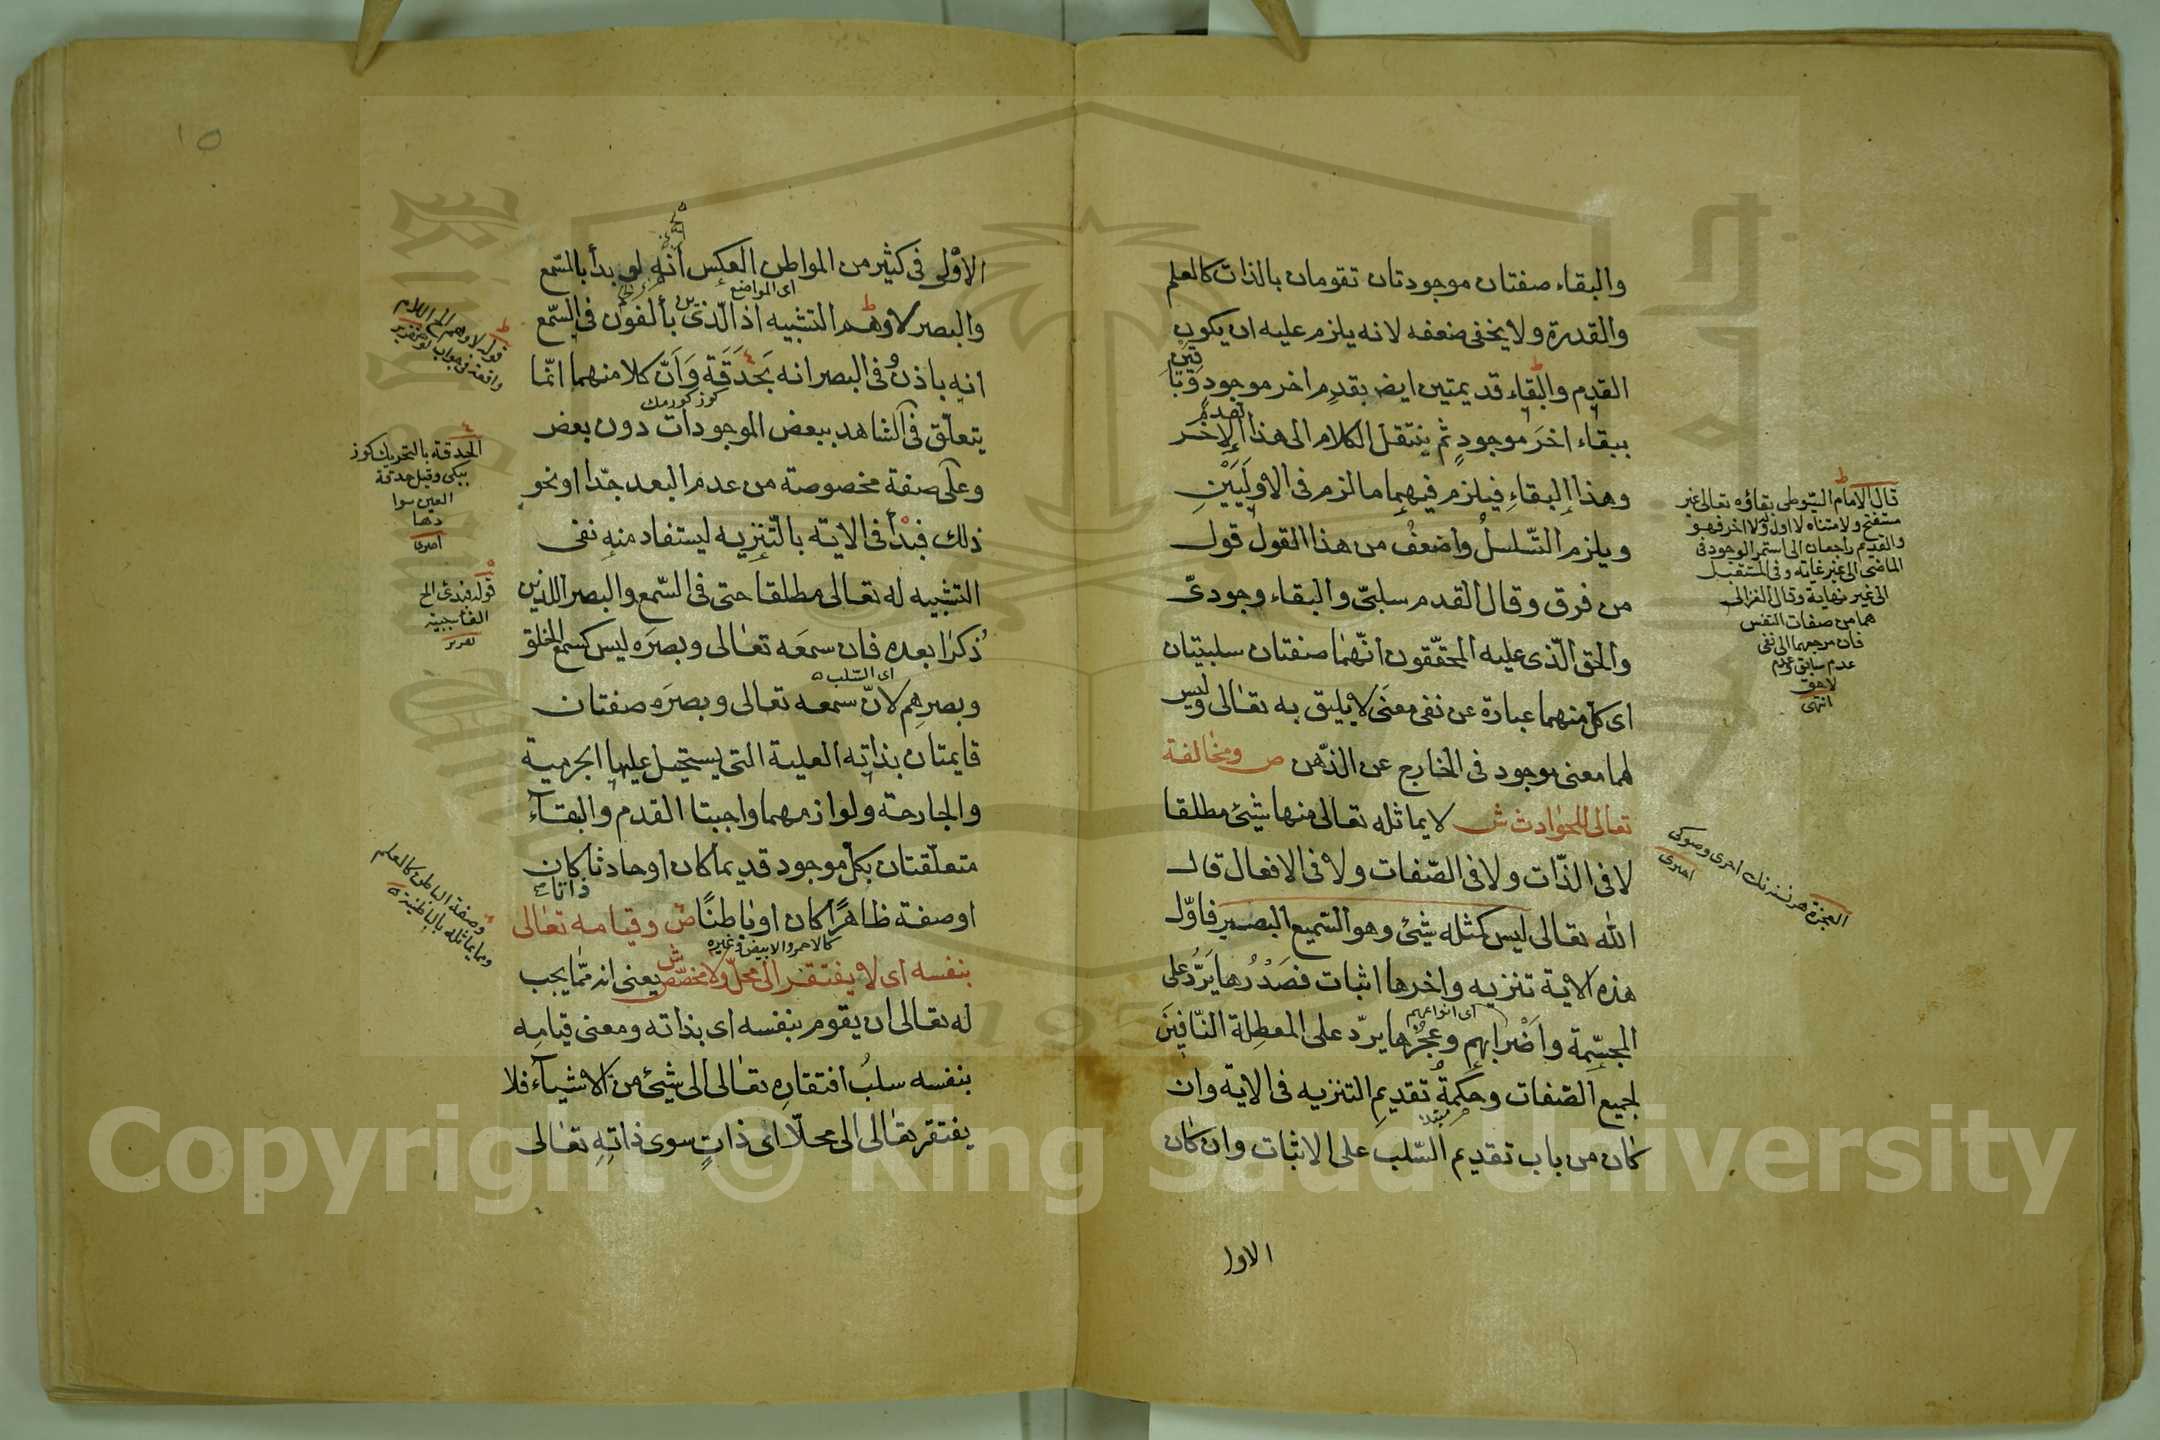 والبقاء صفتان موجودتان تقومان بالذات كالعلم
والقدرة ولا يخفى ضعفه لانه يلزم عليه ان يكون
القدم والبقاء قديمتين ايض بقدم اخر موجود وباقيتين
ببقاء اخر موجود ثم ينتقل الكلام الى هذا القدم الاخر
وهذا البقاء فيلزم فيهما ما لزم في الاوليين
ويلزم التسلسل واضعف من هذا القول قول
من فرق وقال القدم سلبي والبقاء وجودي
والحق الذي عليه المحققون انهما صفتان سلبيتان
اى كل منهما عبارة عن نفى معنى لا يليق به تعالى وليس
لهما معنى موجود في الخارج عن الذهن ص ومخالفة
تعالى للحوادث ش لا يماثله تعالى منها شيئ مطلقا
لا في الذات ولا في الصفات ولا في الافعال قال
الله تعالى ليس كمثله شيئ وهو السميع البصير فاول
هذه الاية تنزيه واخرها اثبات فصدرها يرد على
اى انواعهم
المجسمة واضرابهم وعجزها يرد على المعطلة النافين
لجميع الصفات وحكمة تقديم التنزيه في الاية وان
كان من باب تقديم السلب على الاثبات وان كان
الاول
قال الامام السيوطى بقاؤه تعالى غير
مستفتح ولا متناه لا اول له ولا اخر فهو
والقديم راجعان الى استمر الوجود في
الماضى الى غير غاية وفي المستقبل
الى غير نهاية وقال الغزالى
هما من صفات النفس
فان مرجعهما الى نفى
عدم سابق وعدم
لاحق
انتهى
العجزة هر نسنه نك اخرى وصوكى
اخترى
١٥
الاولى في كثير من المواطن العكس انه لو بدأ بالسمع
اى المواضع
والبصر لاوهم التشبيه اذ الذين يألفون في السمع
انه باذن وفي البصر انه بحدقة وان كلا منهما انما
كوز كورمك
يتعلق في الشاهد ببعض الموجودات دون بعض
وعلى صفة مخصوصة من عدم البعد جدا او نحو
ذلك فبدأ في الاية بالتنزيه ليستفاد منه نفى
التشبيه له تعالى مطلقا حتى في السمع والبصر اللذين
ذكرا بعده فان سمعه تعالى وبصره ليس كسمع الخلق
اى السلب
وبصرهم لان سمعه تعالى وبصره صفتان
قايمتان بذاته العلية التى يستحيل عليها الجرمية
والجارحة ولوازمهما واجبتا القدم والبقاء
متعلقتان بكل موجود قديما كان او حادثا كان ذاتا
او صفة ظاهرا كان او باطنا ص وقيامه تعالى
كالاحمر والابيض وغيره
بنفسه اى لا يفتقر الى محل ولا مخصص ش يعنى انه مما يجب
له تعالى ان يقوم بنفسه اى بذاته ومعنى قيامه
بنفسه سلب افتقاره تعالى الى شيئ من الاشياء فلا
يفتقر تعالى الى محلا اى ذات سوى ذاته تعالى
قوله لاوهم الخ اللام
واقعة في جواب لو
الحدقة بالتحريك كوز
ببكى وقيل حدقة
العين سوا
دها
اخترى
قوله فبدئ الخ
الفا سببية
تقرير
وصفة الباطن كالعلم
وما يماثله بالباطنية